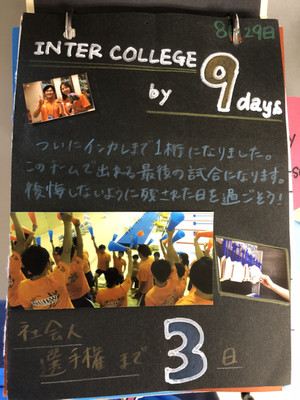 8月29日
INTER COLLEGE
by 9 days
ついにインカレまで1桁になりました。
このチームで出れる最後の試合になります。
後悔しないように残された日を過ごそう!
社会人
選手権まで 3日